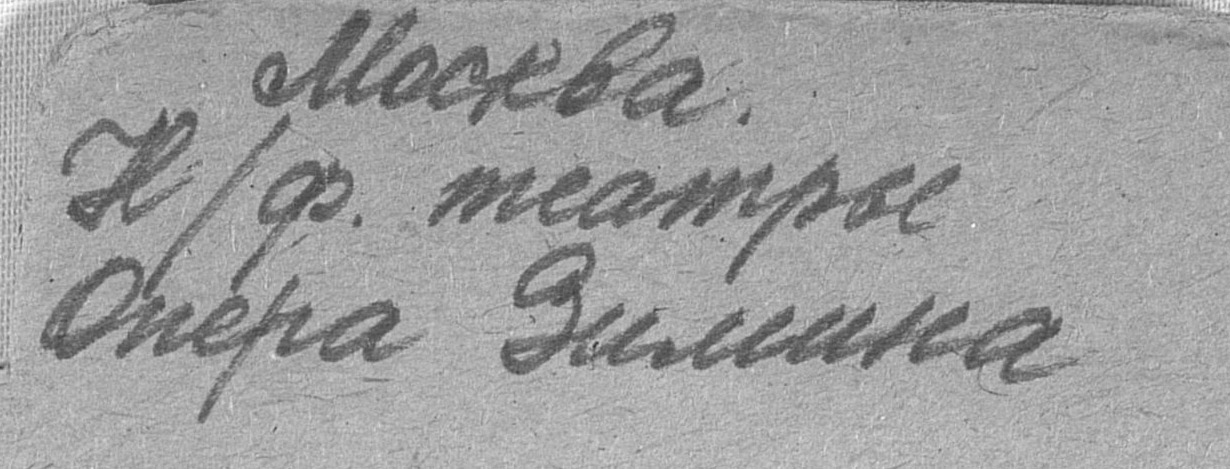 Москва.
Н/ф. театры
Опера Зимина